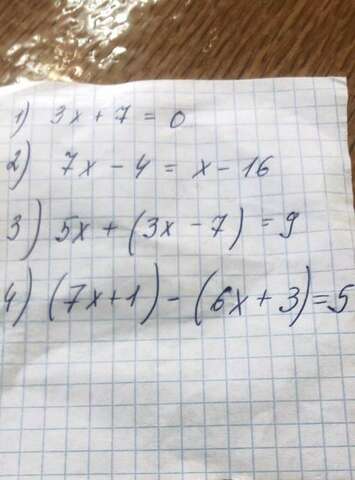 1) 3x + 7 = 0
2) 7x - 4 = x - 16
3) 5x + (3x - 7) = 9
4) (7x+1) - (6x + 3) = 5